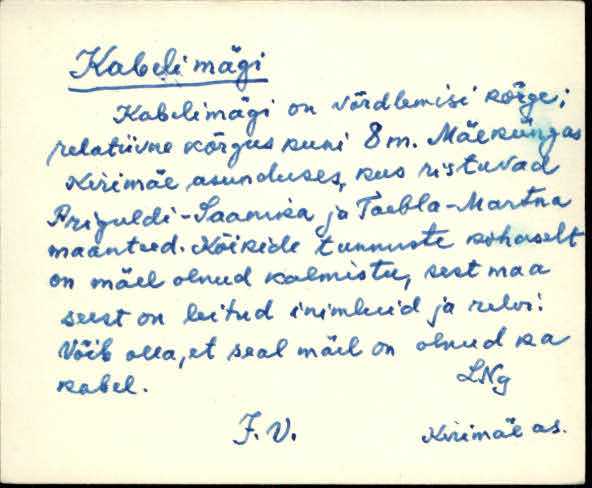 Kabelimägi
Kabelimägi on võrdlemisi kõrge;
relatiivne kõrgus kuni 8 m. Mäeküngas
Kirimäe asunduses, kus ristuvad
Priguldi-Saanika ja Taebla-Martna
maanteed. Kõikide tunnuste kohaselt
on mäel olnud kalmistu, sest maa
seest on leitud inimluid ja relvi.
Võib olla, et seal mäel on olnud ka
kabel.
LNg
F. V.
Kirimäe as.